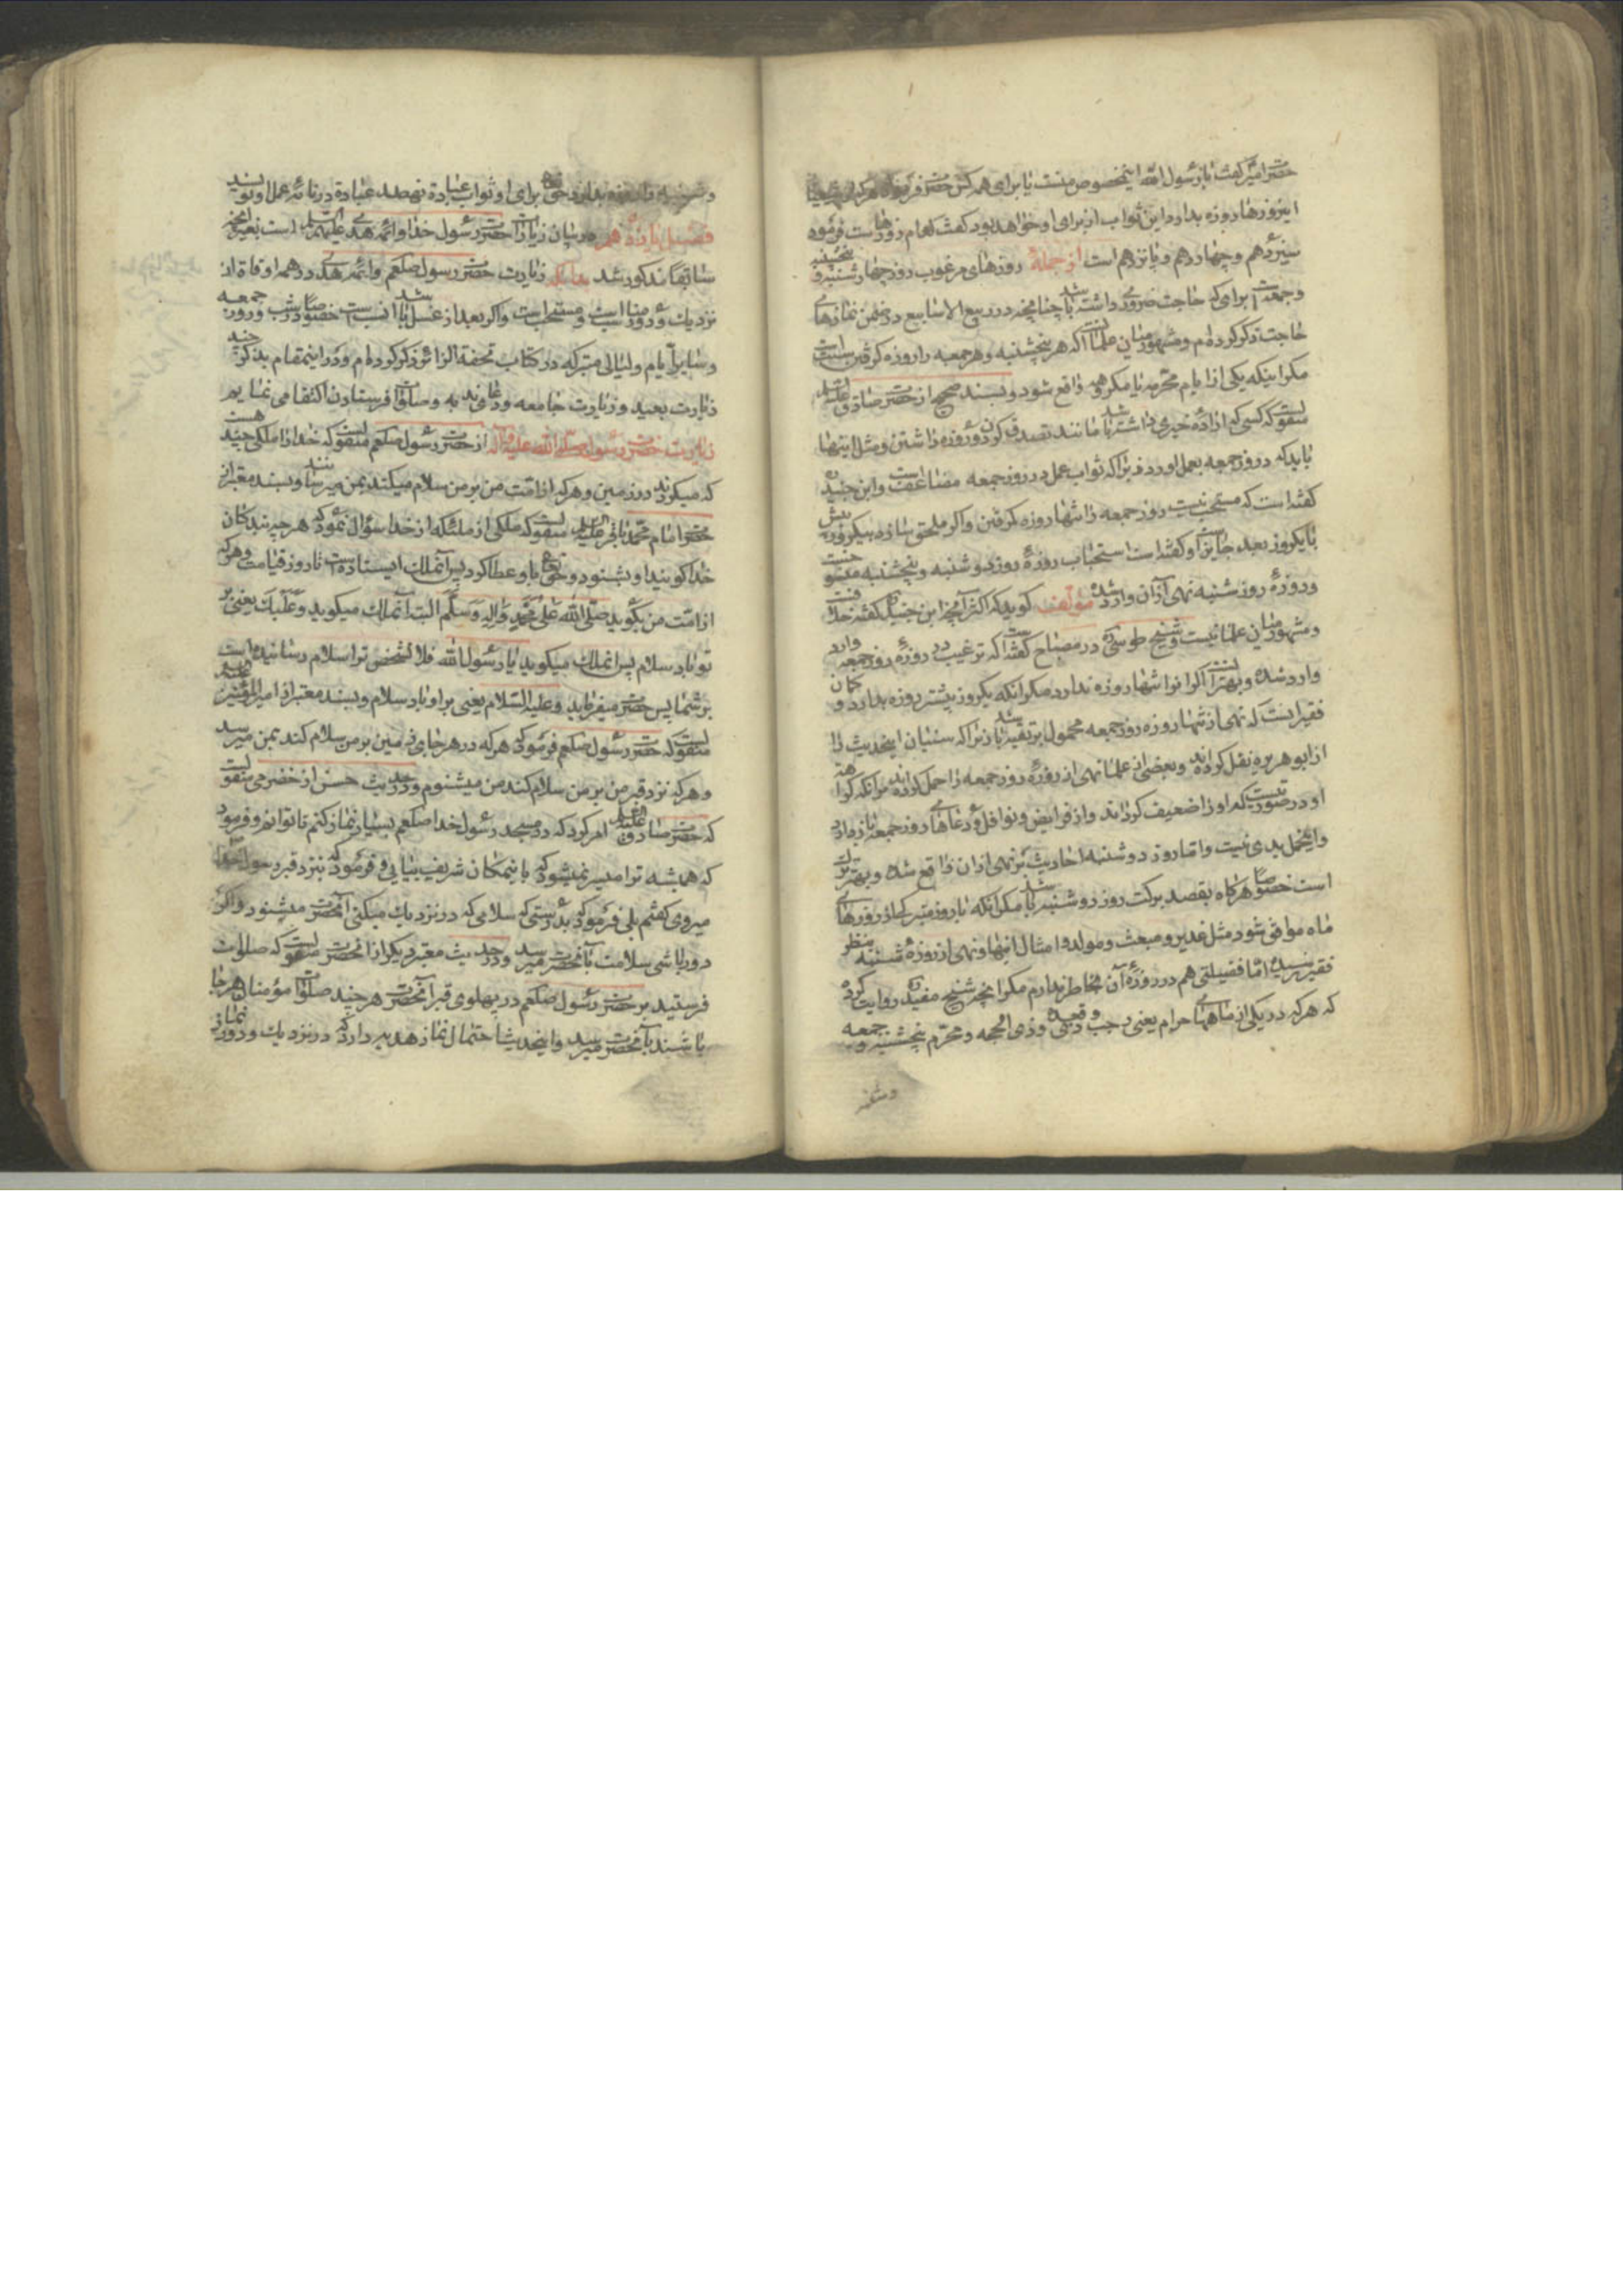 حضرت امیر گفت یا رسول الله این مخصوص منست یا برای همه کس حضرت فرمود
اینروزها روزه بدارد این ثواب از برای او خواهد بود گفت کدام روزهاست فرموده
سیزدهم و چهاردهم و پانزدهم است از جمله روزهای مرغوب روز چهارشنبه و پنجشنبه
و جمعه است برای که حاجت ضروری داشته باشد چنانچه در ربیع الاسابیع در ضمن نمازهای
حاجت ذکر کرده‌ام و مشهور میان علما آنست که هر پنجشنبه و هر جمعه را روزه گرفتن سنت است
مگر اینکه یکی از ایام محرمه یا مکروهه واقع شود و بسند صحیح از حضرت صادق علیه السلم
منقولست که کسی که اراده خیری داشته باشد مانند تصدق کردن و روزه داشتن و مثل اینها
باید که در روز جمعه بعمل اورد زیرا که ثواب عمل در روز جمعه مضاعف است و ابن جنید ره
گفته است که مستحب نیست روز جمعه را تنها روزه گرفتن و اگر ملحق سازد بیکروز پیش
یا یکروز بعد جایز است و گفته است استحباب روزه روز دوشنبه و پنجشنبه منسوخست
و روزه روز شنبه نهی از آن وارد شده مؤلف گوید که اکثر آنچه ابن جنید ره گفته خلافست
و مشهور میان علما نیست و شیخ طوسی ره در مصباح گفته است که ترغیب در روزه روز جمعه وارد
وارد شده و بهتر آنست که انرا تنها روزه ندارد مگر انکه یکروز پیشتر روزه بدارد و گمان
فقیر اینست که نهی از تنها روزه روز جمعه محمول بر تقیه باشد زیرا که سنیان اینحدیث را
از ابو هریره نقل کرده‌اند و بعضی از علما نهی از روزه روز جمعه را حمل کرده‌اند بر آنکه
او در صورتیست که او را ضعیف گرداند و از فرایض و نوافل و دعاهای روز جمعه باز دارد
و اینحمل بدی نیست و اما روز دوشنبه احادیث بر نهی از ان واقع شده و بهتر ترک
است خصوصا هرگاه بقصد برکت روز دوشنبه باشد مگر انکه با روز متبرکه از روزهای
ماه موافق شود مثل غدیر و مبعث و مولد و امثال اینها و نهی از روزه شنبه بنظر
فقیر نرسیده اما فضیلتی هم در روزه آن بخاطر ندارم مگر انچه شیخ مفید ره روایت کرده
که هر که در یکی از ماههای حرام یعنی رجب و ذی قعده و ذی الحجه و محرم پنجشنبه و جمعه
و شنبه
و شنبه را روزه بدارد حق تع برای او ثواب عبادة نهصد عبادة در نامه عمل او نویسد
فصل یازدهم در بیان زیارات حضرت رسول خدا و ائمه هدی علیهم السلم است بغیر انچه
سابقا مذکور شد بدانکه زیارت حضرت رسول صلعم و ائمه هدی در همه اوقات از
نزدیک و دور مناسب است و مستحب است و اگر بعد از غسل باشد انسب است خصوصا در شب جمعه و روز
و سایر ایام و لیالی متبرکه در کتاب تحفة الزائر ذکر کرده‌ام و در اینمقام بذکر چند
زیارت بعید و زیارت جامعه و دعای ندبه و صلوات فرستادن اکتفا می نمایم
زیارت حضرت رسول صلی الله علیه و آله از حضرت رسول صلعم منقولست که خدا را ملکی چند هست
که میگردند در زمین و هر که از امت من بر من سلام میکند بمن میرسانند و بسند معتبر از
حضرت امام محمد باقر علیه السلم منقولست که ملکی از ملئکه از خدا سؤال نمود که هر چه بندگان
خدا گویند او بشنود و حق تع باو عطا کرد پس آنملک ایستاده است تا روز قیامت و هر که
از امت من بگوید صلی الله علی محمد و آله و سلم البته آنملک میگوید و علیک یعنی بر
تو باد سلام پس انملک میگوید یا رسول الله فلانشخص ترا سلام رسانیده است
بر شما پس حضرت میفرماید و علیه السلام یعنی بر او باد سلام و بسند معتبر از امیر المؤمنین علیه السلم
منقولست که حضرت رسول صلعم فرمود که هر که در هر جای زمین بر من سلام کند بمن میرسد
و هر که نزد قبر من بر من سلام کند من میشنوم و در حدیث حسن از خضرمی منقولست
که حضرت صادق علیه السلم امر کرد که در مسجد رسول خدا صلعم بسیار نماز کنم تا توانم و فرمود
که همیشه ترا میسر نمیشود که باینمکان شریف بیایی و فرمود که بنزد قبر رسول خدا
میروی گفتم بلی فرمود که بدرستی که سلامی که در نزدیک میکنی آنحضرت میشنود و اگر
دور باشی سلامت بآنحضرت میرسد و در حدیث معتبر دیگر از انحضرت منقولست که صلوات
فرستید بر حضرت رسول صلعم در پهلوی قبر آنحضرت هر چند صلوات مؤمنان هر جا
باشند بآنحضرت میرسد و اینحدیث احتمال نماز هدیه دارد که در نزدیک و دور نماز